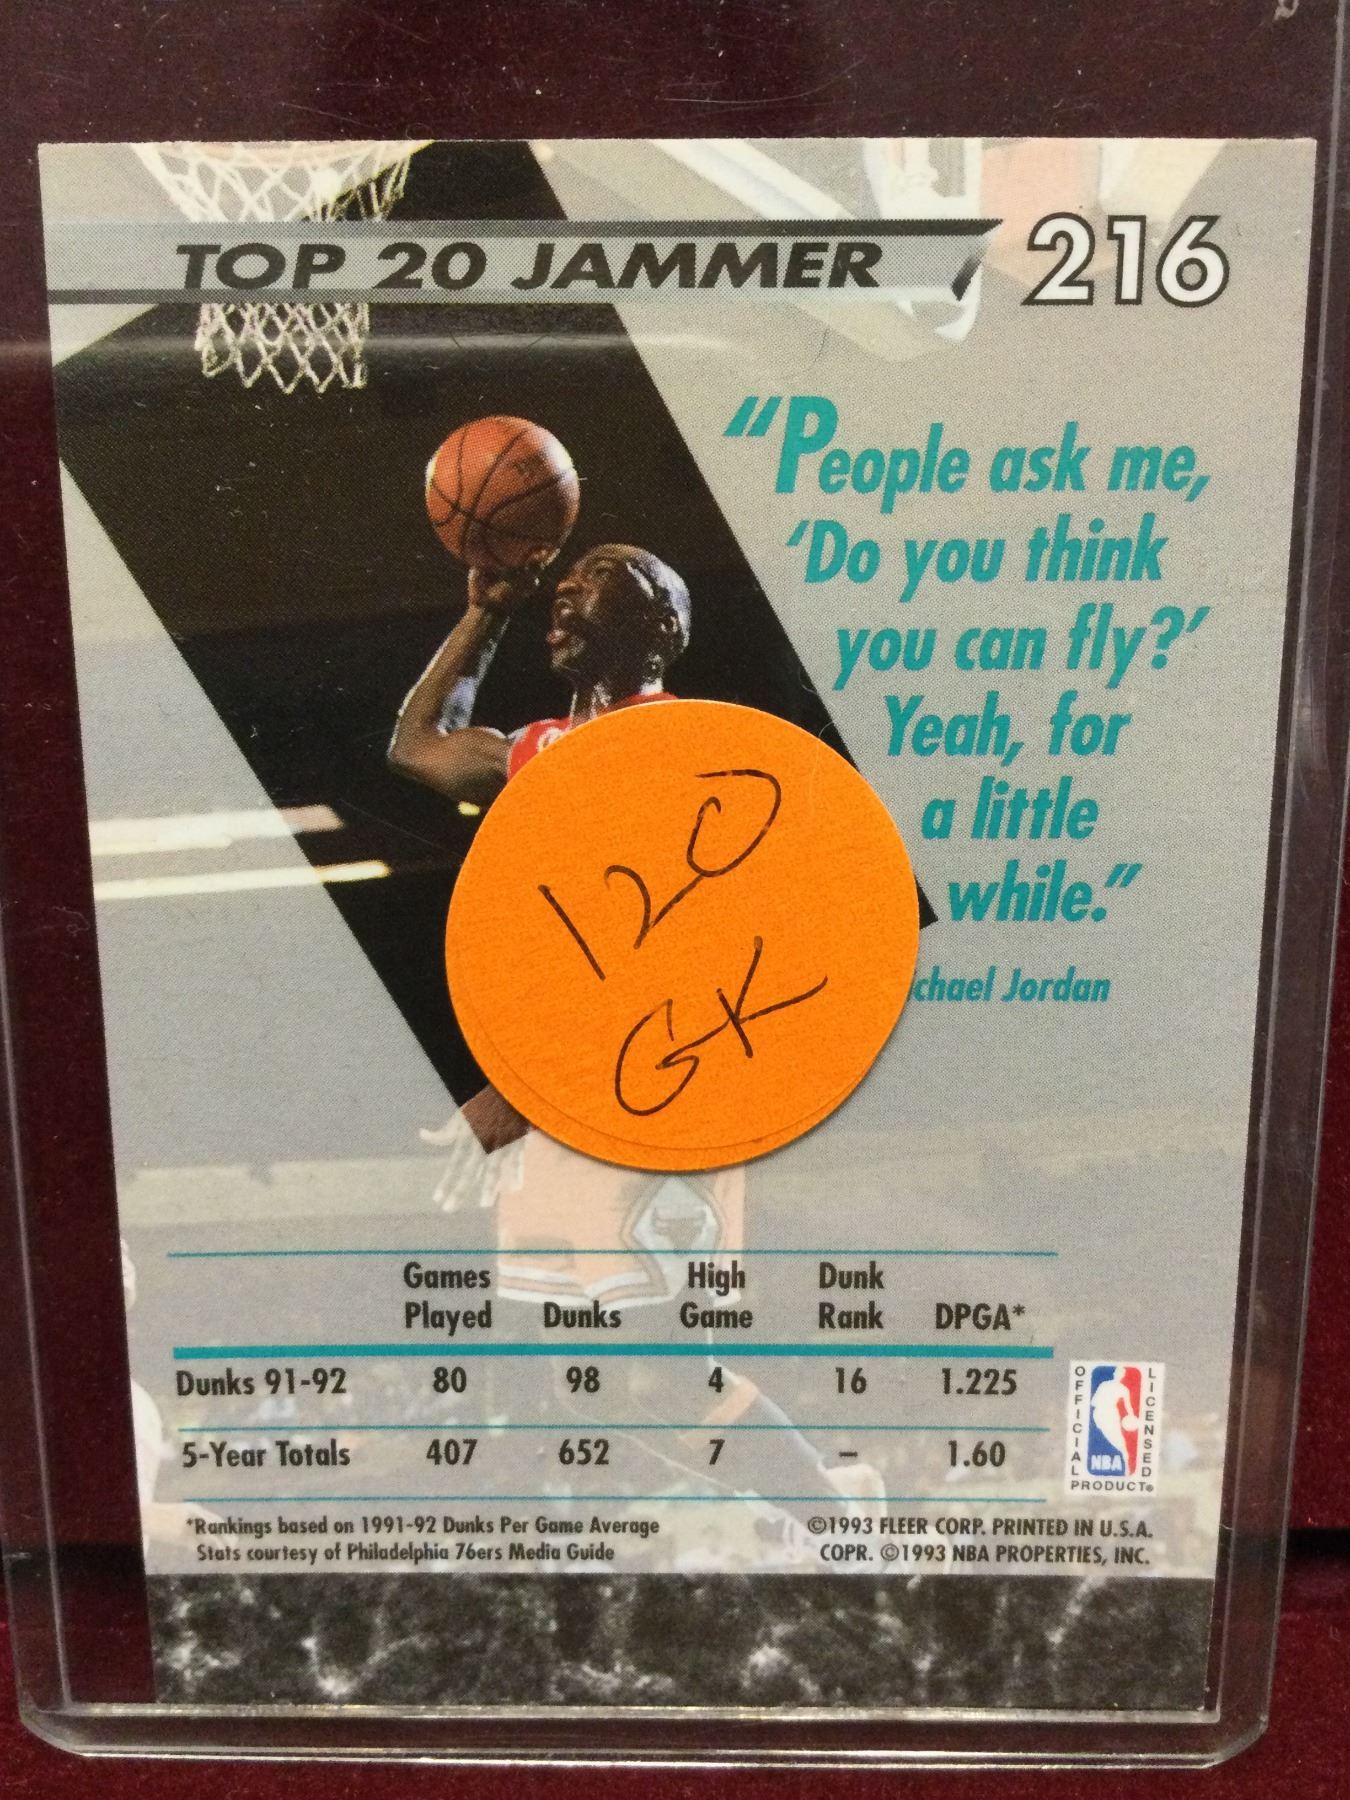 TOP 20 JAMMER 216
“People ask me,
‘Do you think
you can fly?’
Yeah, for
a little
while.”
chael Jordan
120
GK
Games Played Dunks High Game Dunk Rank DPGA*
Dunks 91-92 80 98 4 16 1.225
5-Year Totals 407 652 7 – 1.60
*Rankings based on 1991-92 Dunks Per Game Average
Stats courtesy of Philadelphia 76ers Media Guide
©1993 FLEER CORP. PRINTED IN U.S.A.
COPR. ©1993 NBA PROPERTIES, INC.
OFFICIAL
LICENSED
NBA
PRODUCT®